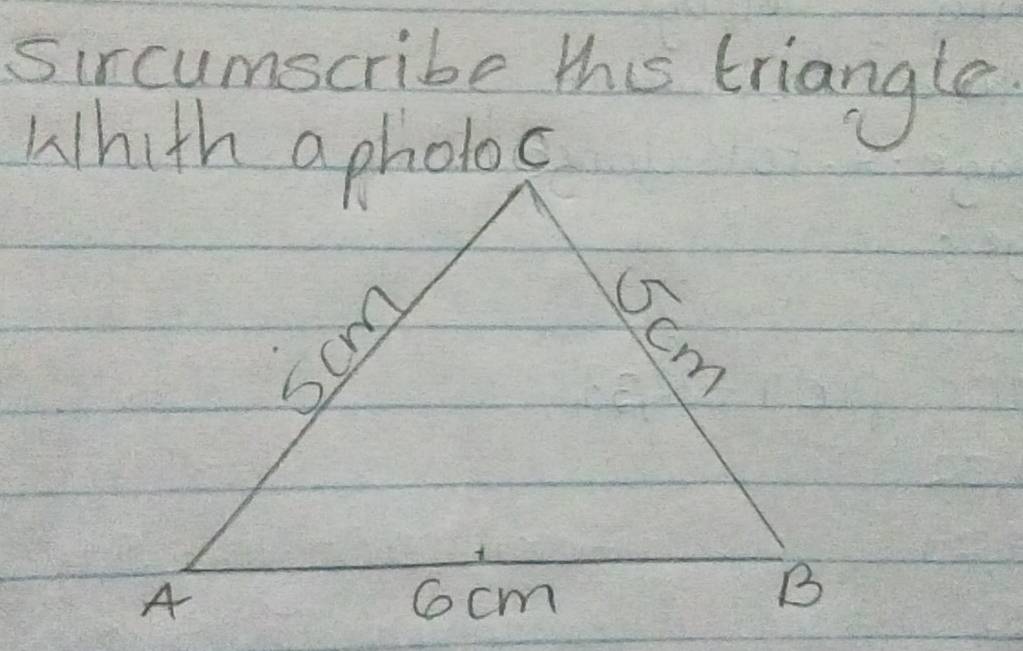 Sircumscribe this triangle.
Whith a photo C
5cm
5cm
A 6cm B